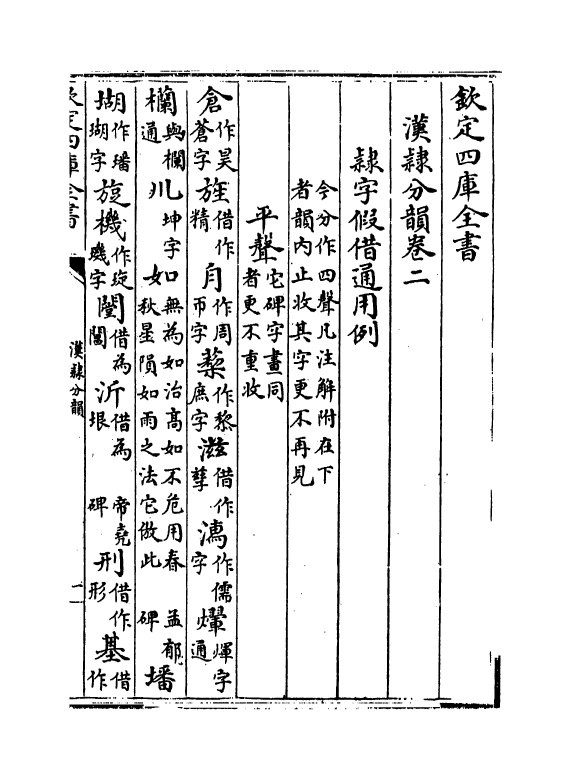 欽定四庫全書
漢隸分韻卷二
隸字假借通用例
今分作四聲凡注解附在下
者韻内止收其字更不再見
平聲它碑字畫同者更不重收
倉作昊蒼字 旌借作精 作周帀字 蔾作黎庶字 滋借作孳 作儒字 煇字通
欄與欄通 坤字 如無為如治高如不危用春秋星隕如雨之法它倣此 孟郁碑 墦
瑚作璠瑚字 旋機作琁璣字 闓借為閶 沂借為垠 帝堯碑 刑借作形 基借作
欽定四庫全書
漢隸分韻
一